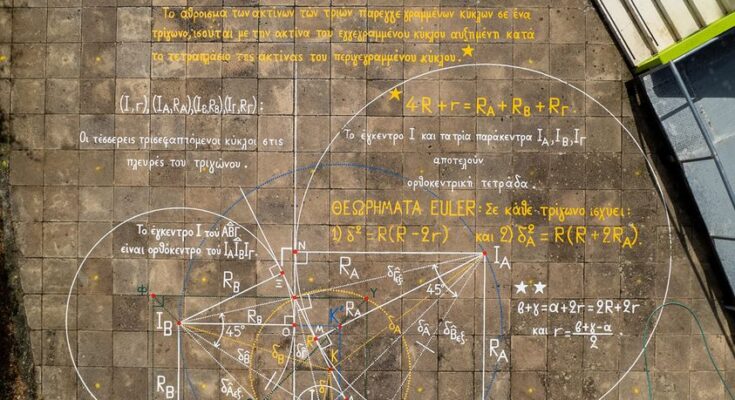 Το άθροισμα των ακτίνων των τριών παρεγγεγραμμένων κύκλων σε ένα
τρίγωνο, ισούται με την ακτίνα του εγγεγραμμένου κύκλου αυξημένη κατά
το τετραπλάσιο της ακτίνας του περιγεγραμμένου κύκλου.
(Ι,r),(Ι_Α,R_Α),(Ι_Β,R_Β),(Ι_Γ,R_Γ):
Οι τέσσερεις τρισεφαπτόμενοι κύκλοι στις
πλευρές του τριγώνου.
4R + r = R_Α + R_Β + R_Γ.
Το έγκεντρο Ι και τα τρία παράκεντρα Ι_Α, Ι_Β, Ι_Γ
αποτελούν
ορθοκεντρική τετράδα.
ΘΕΩΡΗΜΑΤΑ EULER: Σε κάθε τρίγωνο ισχύει:
1) δ² = R(R-2r) και 2) δ_Α² = R(R+2R_Α).
Το έγκεντρο Ι του ΑΒΓ
είναι ορθόκεντρο του Ι_ΑΙ_ΒΙ_Γ.
β+γ=α+2r=2R+2r
και r = β+γ-α / 2 .
N
Ξ
R_B
R_A
I_A
45°
Φ
Υ
I_B
R_B
R_A
K'
45°
O
M
δ_B
δ_A
K
R_A
R_B